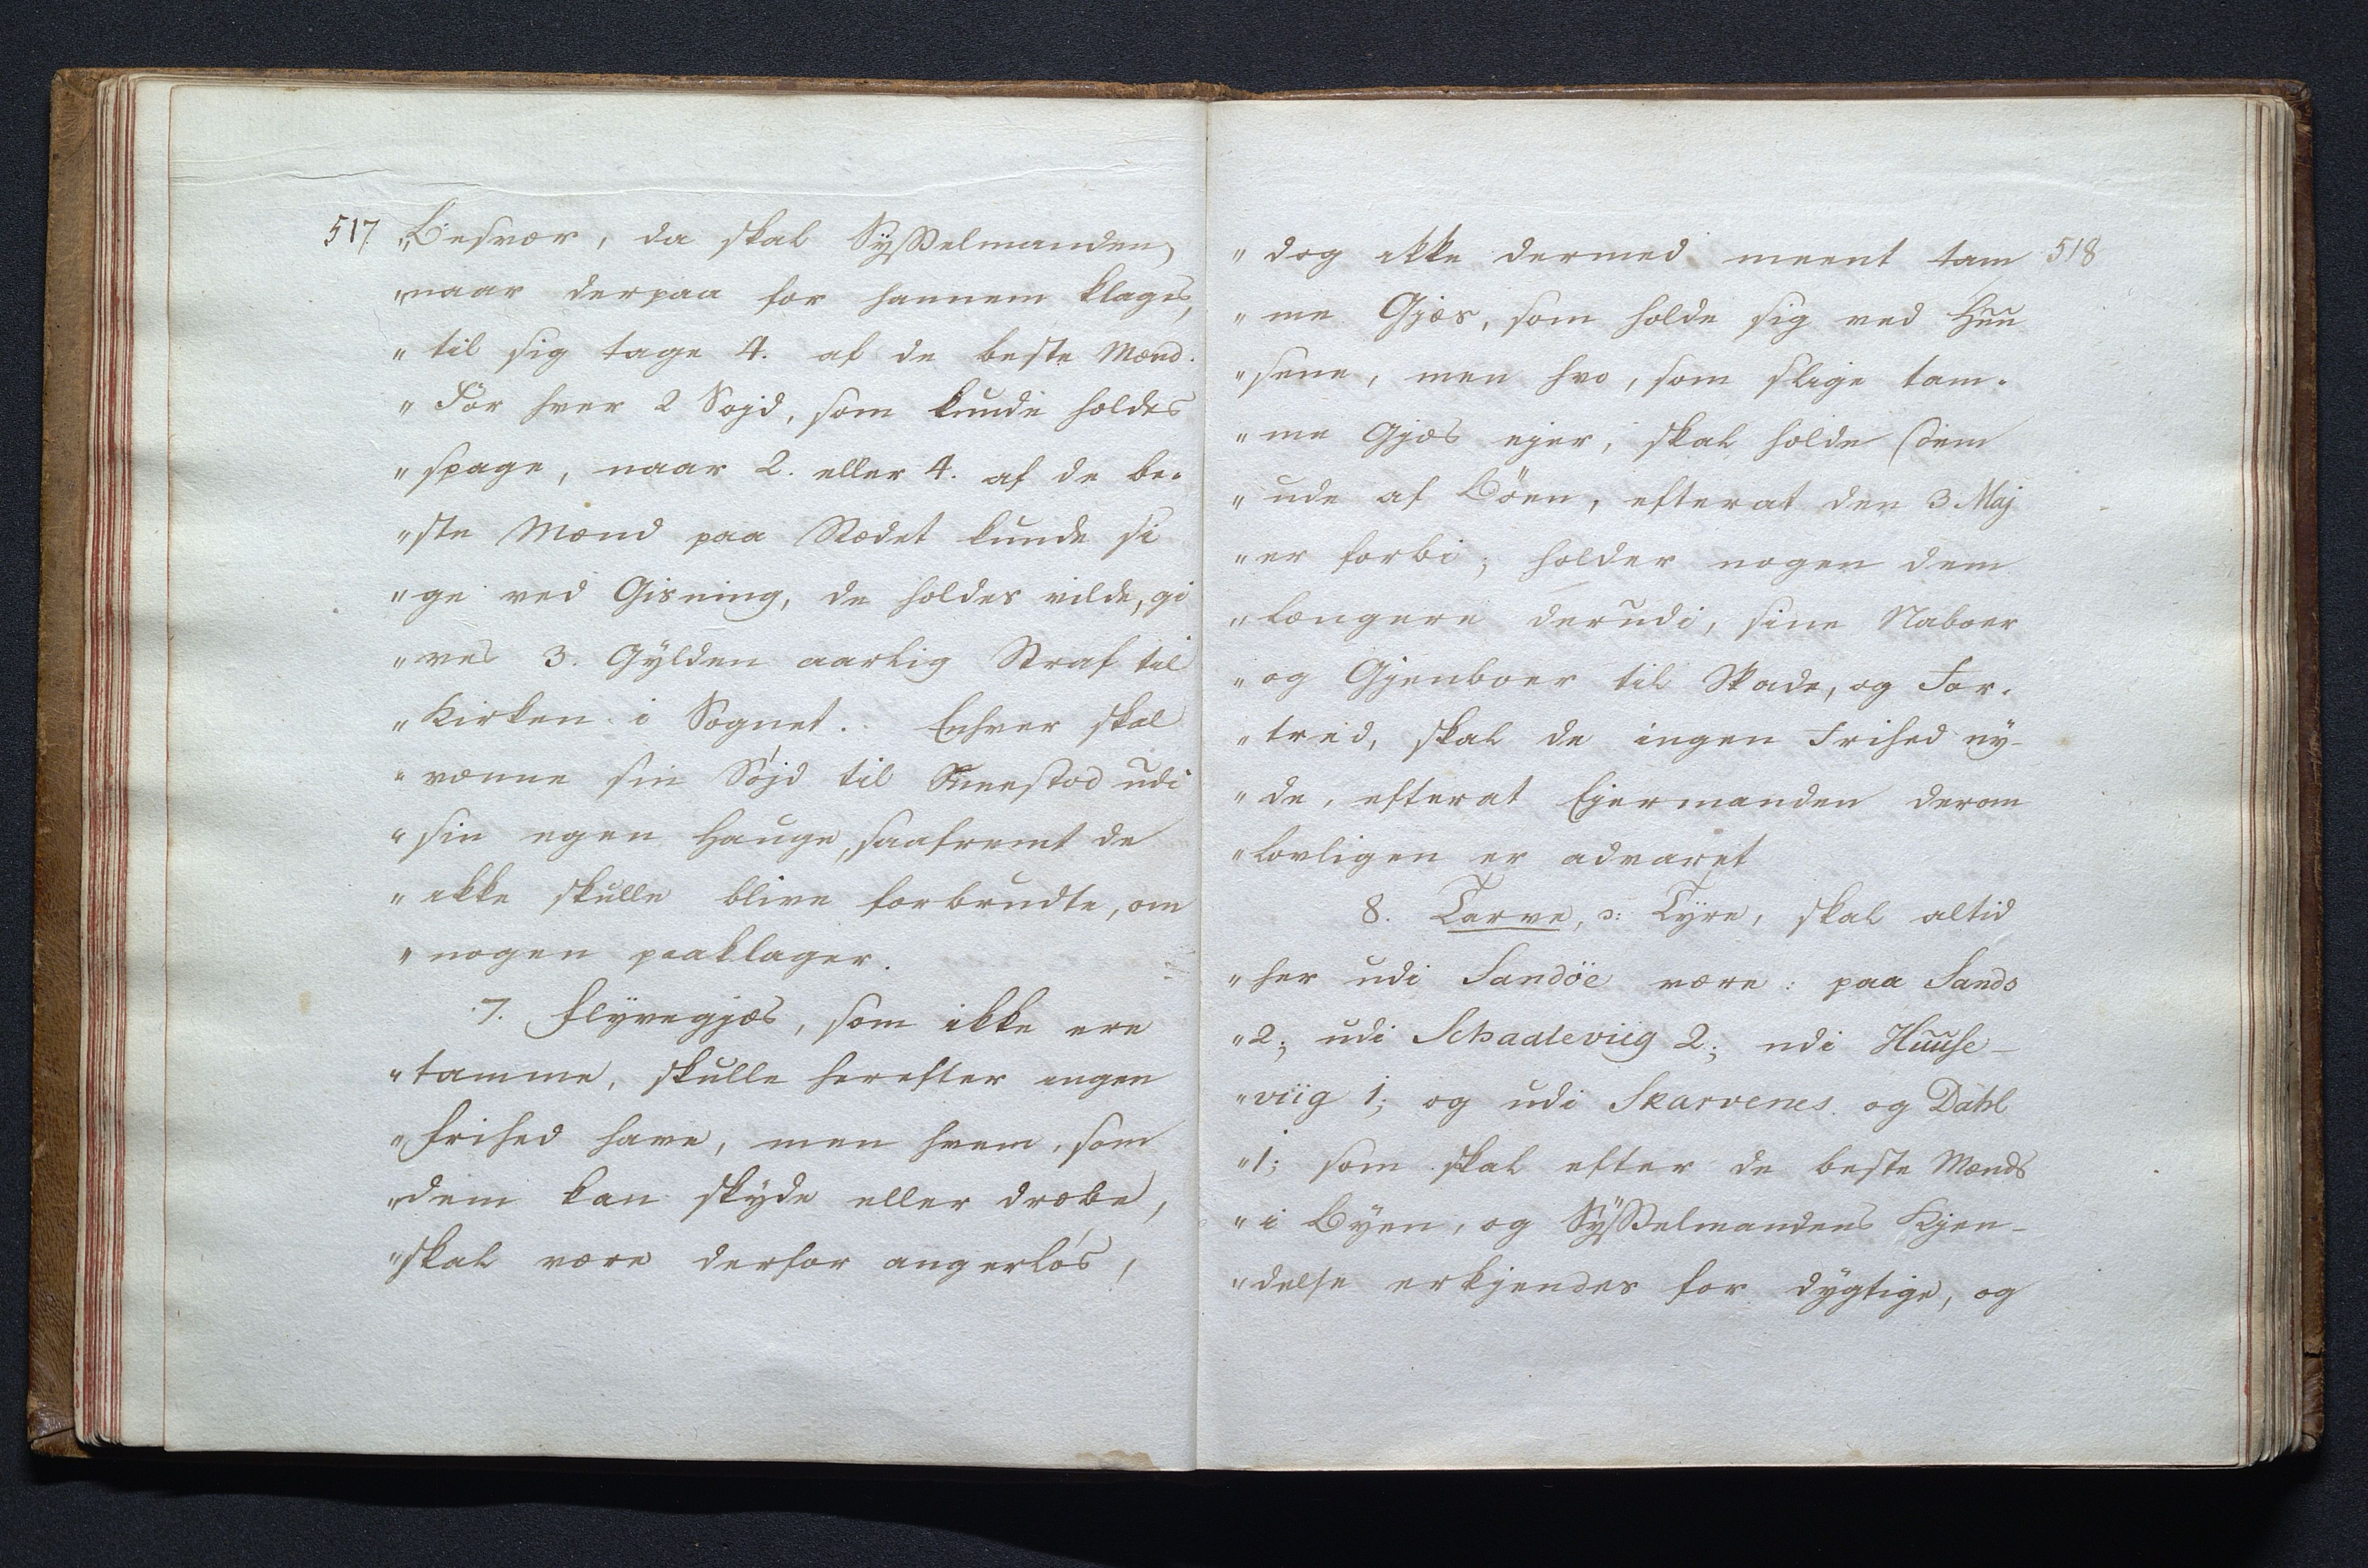 517 „Besvær, da skal Sysselmanden,
„naar derpaa for hannem klages,
„til sig tage 4. af de beste Mænd.
„For hver 2 Sojd, som kunde holdes
„spage, naar 2. eller 4. af de be-
„ste Mænd paa Stædet kunde si
„ge ved Gisning, de holdes vilde, gi
„ves 3. Gylden aarlig Straf til
„Kirken i Sognet. Enhver skal
„vænne sin Sójd til Sneestod udi
„sin egen Hauge, saafremt de
„ikke skulle blive forbrudte, om
„nogen paaklager.
7. Flÿvegjæs, som ikke ere
„tamme, skulle herefter ingen
„Frihed have, men hvem, som
„dem kan skyde eller dræbe,
„skal være derfor angerlós,
„dog ikke dermed meent tam 518
„me Gjæs, som holde sig ved Huu
„sene, men hvo, som slige tam-
„me Gjæs ejer, skal holde dem
„ude af Böen, efterat den 3 Maj
„er forbi; holder nogen dem
„længere derudi, sine Naboer
„og Gjenboer til Skade, og For-
„tred, skal de ingen Frihed ny-
„de, efterat Ejermanden derom
„lovligen er advaret
8. Tarve, ɔ: Tÿre, skal altid
„her udi Sandöe være: paa Sands
„2; udi Schaaleviig 2; udi Huuse-
„viig 1; og udi Skarvenes og Dahl
„1; som skal efter de beste Mænds
„i Bÿen, og Sÿsselmandens Kjen-
„delse erkjendes for dÿgtige, og